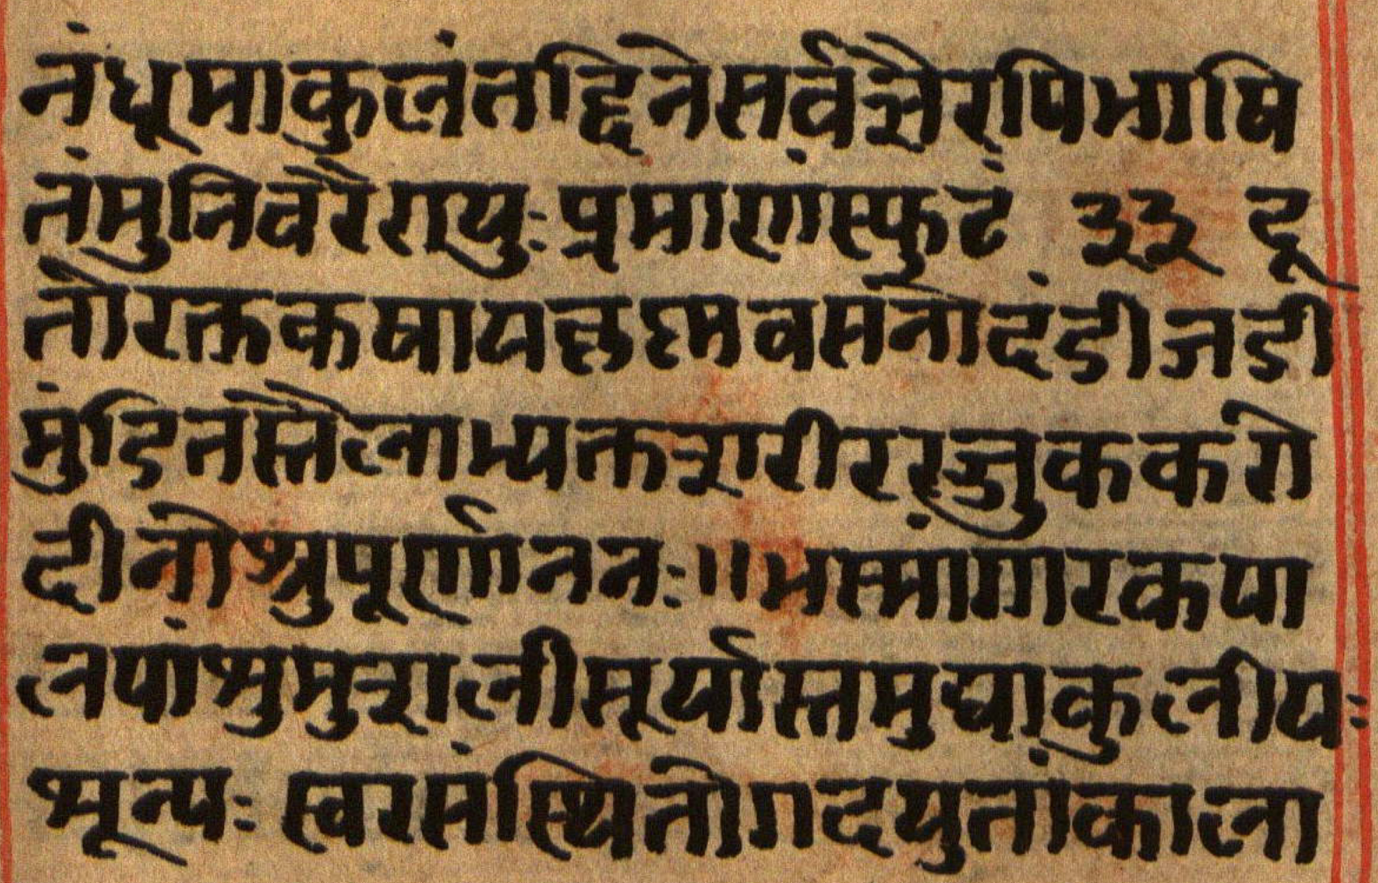 नंधूमाकुलंतद्दिनेसर्वज्ञैरपिभाषि
तंमुनिवरैरायुःप्रमाणंस्फुटं ३३ दू
तोरक्तकषायकृष्णवसनोदंडीजडी
मुंडितस्तैलाभ्यक्तशरीररज्जुककरो
दीनोश्रुपूर्णाननः॥भस्मांगारकपा
लपांशुमुशलीसूर्यास्तमुद्याकुलीयः
शून्यः स्वरसंस्थितोगदयुतांकाला